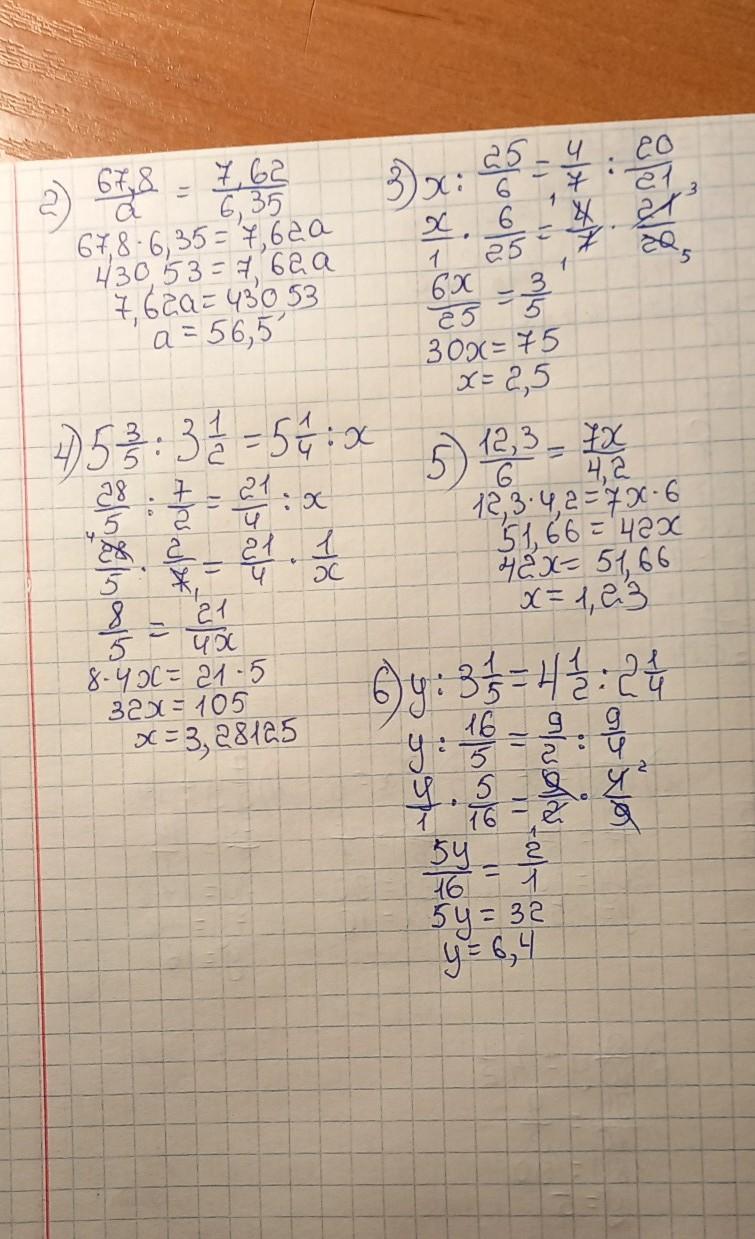 2) 67,8/a = 7,62/6,35
67,8·6,35=7,62a
430,53=7,62a
7,62a=430,53
a=56,5
3) x: 25/6 = 4/7 : 20/21
x/1 · 6/25 = 4/7 · 21/20 1 1 3 5
6x/25 = 3/5
30x=75
x=2,5
4) 5 3/5 : 3 1/2 = 5 1/4 : x
28/5 : 7/2 = 21/4 : x
4 28/5 · 2/7 1 = 21/4 · 1/x
8/5 = 21/4x
8·4x=21·5
32x=105
x=3,28125
5) 12,3/6 = 7x/4,2
12,3·4,2=7x·6
51,66=42x
42x=51,66
x=1,23
6) y: 3 1/5 = 4 1/2 : 2 1/4
y: 16/5 = 9/2 : 9/4
y/1 · 5/16 = 9/2 · 4/9 1 2
5y/16 = 2/1
5y=32
y=6,4